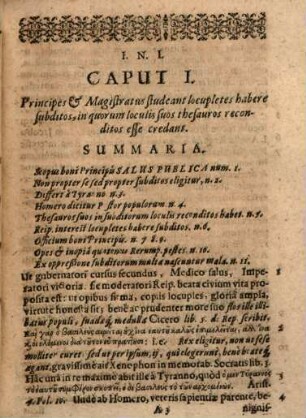 I. N. I.
CAPUT I.
Principes & Magistratus studeant locupletes habere
subditos, in quorum loculis suos thesauros recon-
ditos esse credant.
SUMMARIA.
Scopus boni Principis SALUS PUBLICA num. 1.
Non propter se sed propter subditos eligitur, n. 2.
Differt à Tyranno n. 3.
Homero dicitur Pastor populorum n. 4.
Thesauros suos in subditorum loculis reconditos habet. n. 5.
Reip. interest locupletes habere subditos. n. 6.
Officium boni Principis. n. 7. 8. 9.
Opes & inopia quatenus Rerump. pestes. n. 10.
Ex oppressione subditorum multa nascuntur mala. n. 11.
Ut gubernatori cursus secundus, Medico salus, Impe-
ratori victoria. Ic moderatori Reip. beata civium vita pro-
posita est: ut opibus firma, copiis locuples, gloria ampla,
virtute honesta sit; benè ac prudenter more suo
Cicero lib. 5. de Rep. scribit,
i. e. Rex eligitur, non ut sese
molliter curet sed ut per ipsum, ii, qui elegerunt, benè beateq;
agant, gravissimè ait Xenophon in memorab. Socratis lib. 3.
Hâc unâ in re maximè abit ille à Tyranno, quòd
Arist.
4. Pol. 10. Unde ab Homero, veteris sapientiæ parente, be-
A 3 nignis-